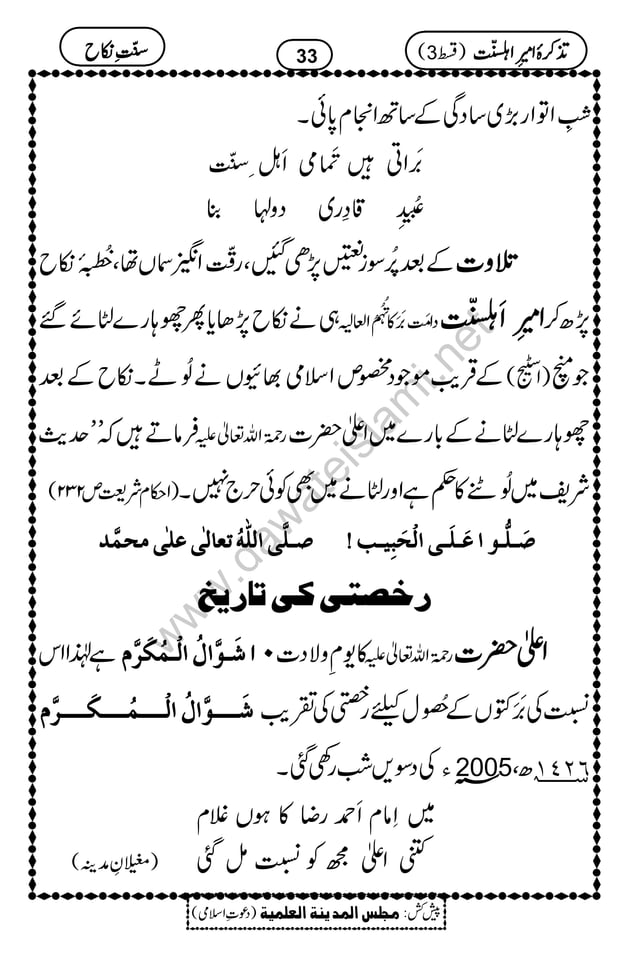 تذکرۂ امیرِ اہلسنّت (قسط 3)
33
سنّتِ نکاح
شبِ اتوار بڑی سادگی کے ساتھ انجام پائی۔
بَراتی ہیں تَمامی اَہل ِسنّت
عُبیدِ قادِری دولہا بنا
تلاوت کے بعد پُرسوز نعتیں پڑھی گئیں، رقّت انگیز سماں تھا، خُطبۂ نکاح
پڑھ کر امیرِ اَہلسنّت دامَت بَرَکاتُہُم العالیہ ہی نے نکاح پڑھایا پھر چھوہارے لٹائے گئے
جو منچ (اسٹیج) کے قریب موجود مخصوص اسلامی بھائیوں نے لُوٹے۔ نکاح کے بعد
چھوہارے لٹانے کے بارے میں اعلیٰ حضرت رحمۃ اللہ تعالیٰ علیہ فرماتے ہیں کہ ’’حدیث
شریف میں لُوٹنے کا حکم ہے اور لٹانے میں بھی کوئی حرج نہیں۔ (احکام شریعت ص ۲۳۲)
صَلُّوا عَلَی الْحَبِیب! صلَّی اللّٰہُ تعالٰی علٰی محمَّد
رخصتی کی تاریخ
اعلیٰ حضرت رحمۃ اللہ تعالیٰ علیہ کا یومِ ولادت ۱۰ شَوَّالُ الْمُکَرَّم ہے لہٰذا اس
نسبت کی بَرَکتوں کے حُصول کیلئے رخصتی کی تقریب شَوَّالُ الْمُکَرَّم
۱٤۲٦ھ، 2005ء کی دسویں شب رکھی گئی۔
میں اِمام اَحمد رضا کا ہوں غلام
کتنی اعلیٰ مجھ کو نسبت مل گئی (مغیلانِ مدینہ)
پیش کش: مجلس المدینۃ العلمیۃ (دعوتِ اسلامی)
www.dawateislami.net